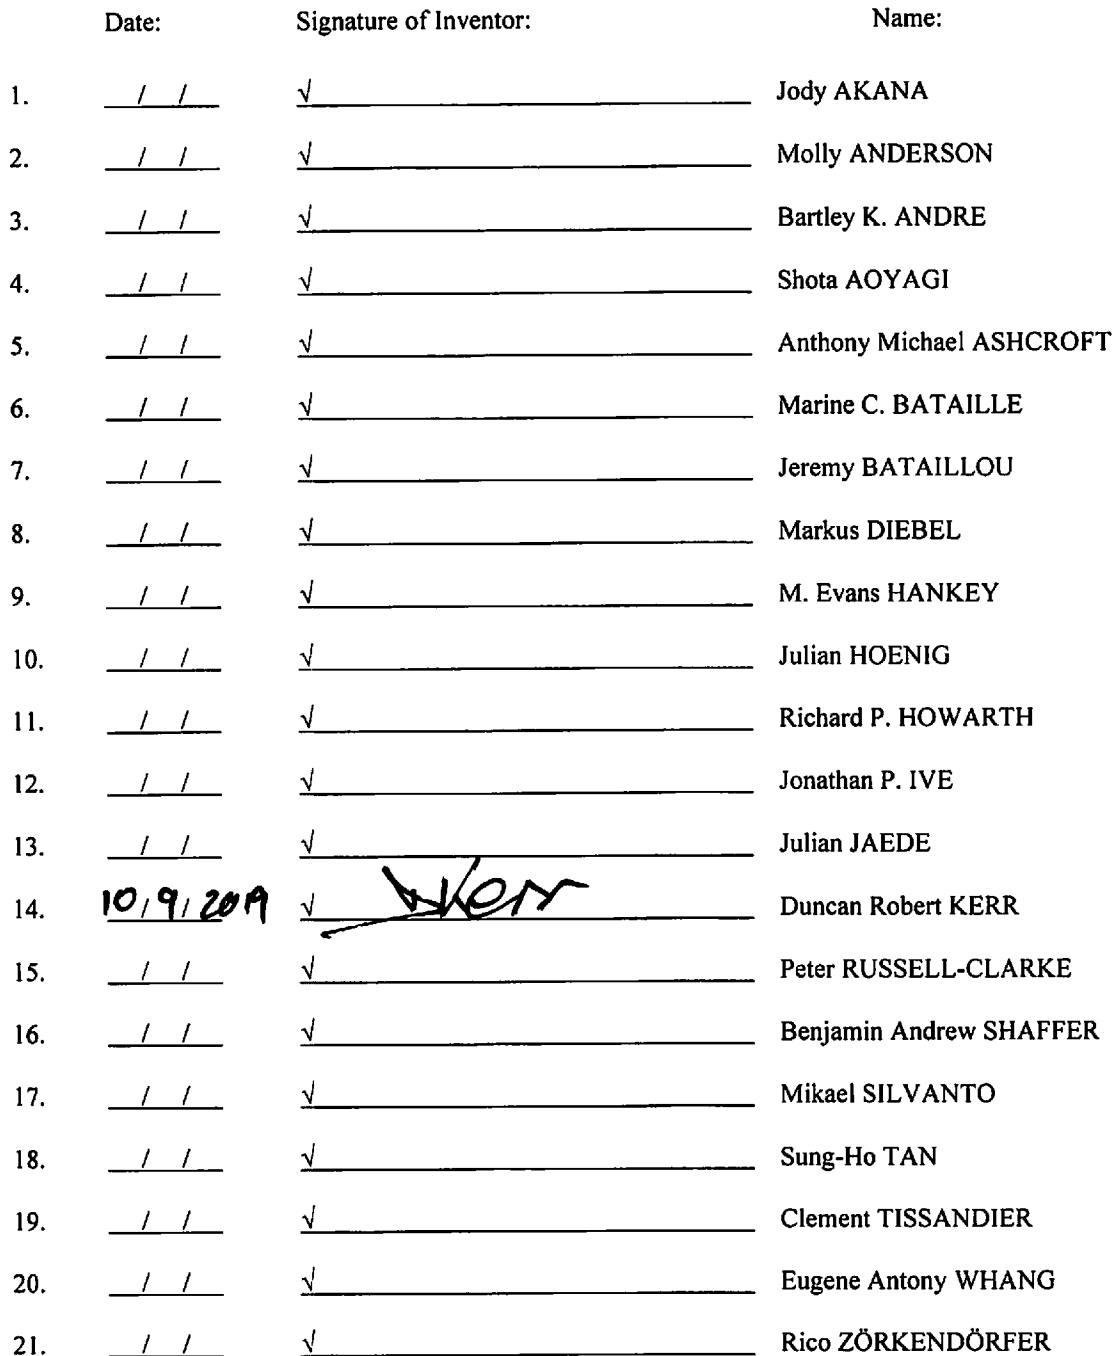 Date: Signature of Inventor: Name:
1. / / √ Jody AKANA
2. / / √ Molly ANDERSON
3. / / √ Bartley K. ANDRE
4. / / √ Shota AOYAGI
5. / / √ Anthony Michael ASHCROFT
6. / / √ Marine C. BATAILLE
7. / / √ Jeremy BATAILLOU
8. / / √ Markus DIEBEL
9. / / √ M. Evans HANKEY
10. / / √ Julian HOENIG
11. / / √ Richard P. HOWARTH
12. / / √ Jonathan P. IVE
13. / / √ Julian JAEDE
14. 10/9/2019 √ DKerr Duncan Robert KERR
15. / / √ Peter RUSSELL-CLARKE
16. / / √ Benjamin Andrew SHAFFER
17. / / √ Mikael SILVANTO
18. / / √ Sung-Ho TAN
19. / / √ Clement TISSANDIER
20. / / √ Eugene Antony WHANG
21. / / √ Rico ZÖRKENDÖRFER